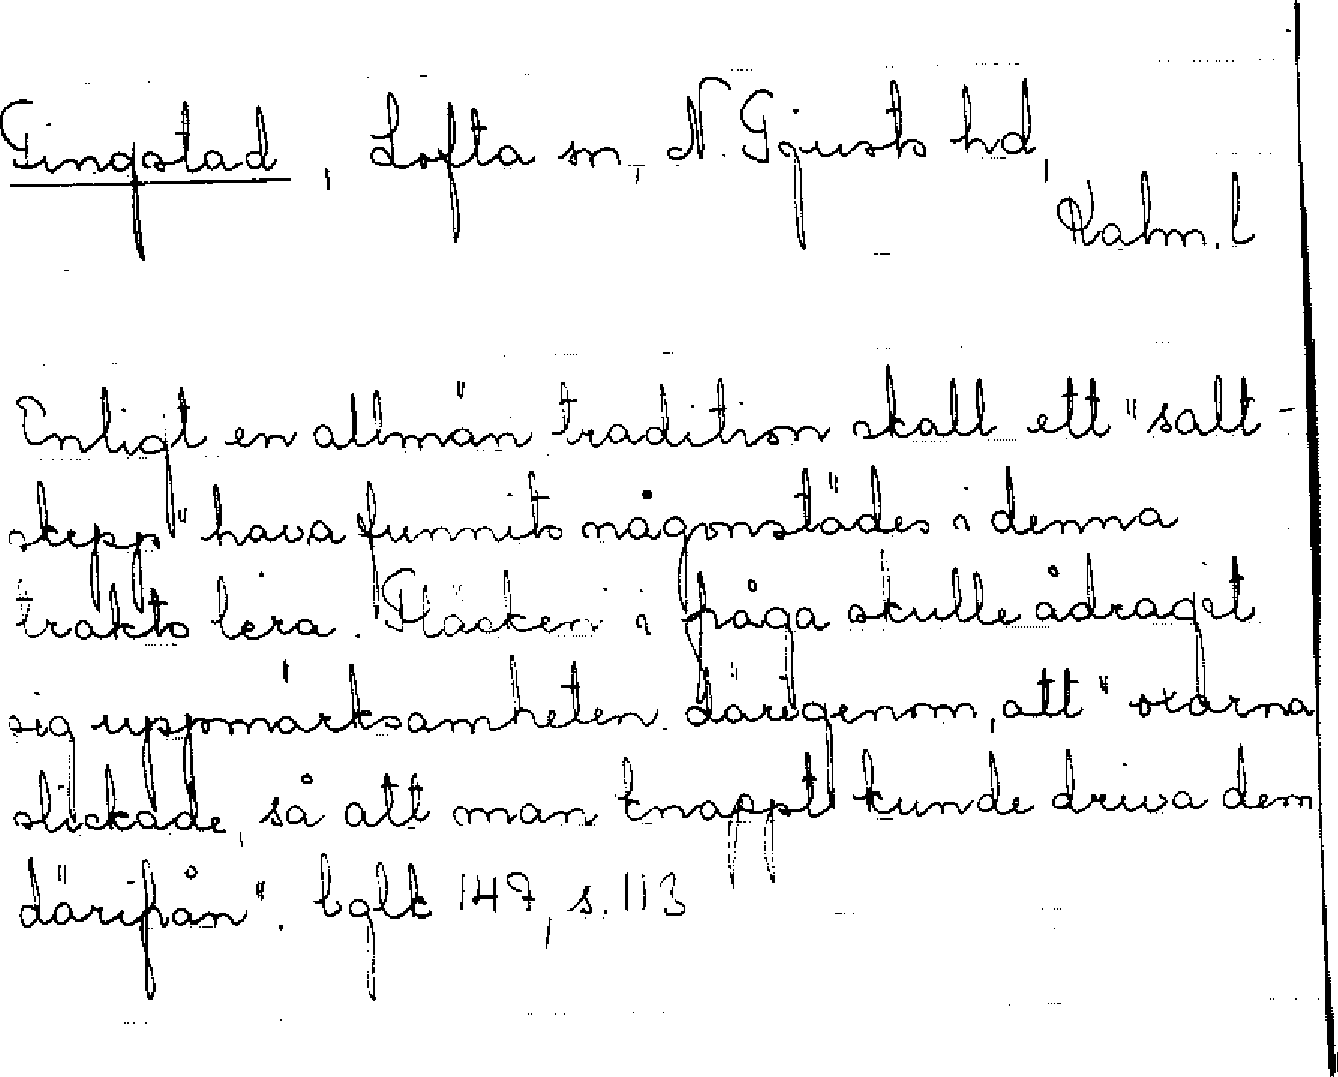 Tingstad, Lofta sn, N. Tjusts hd,
Kalm. l
Enligt en allmän tradition skall ett "salt-
skepp" hava funnits någonstädes i denna
trakts lera. Fläcken i fråga skulle ådragit
sig uppmärksamheten därigenom, att "oxarna
slickade, så att man knappt kunde driva dem
därifrån". bglk 147, s. 113